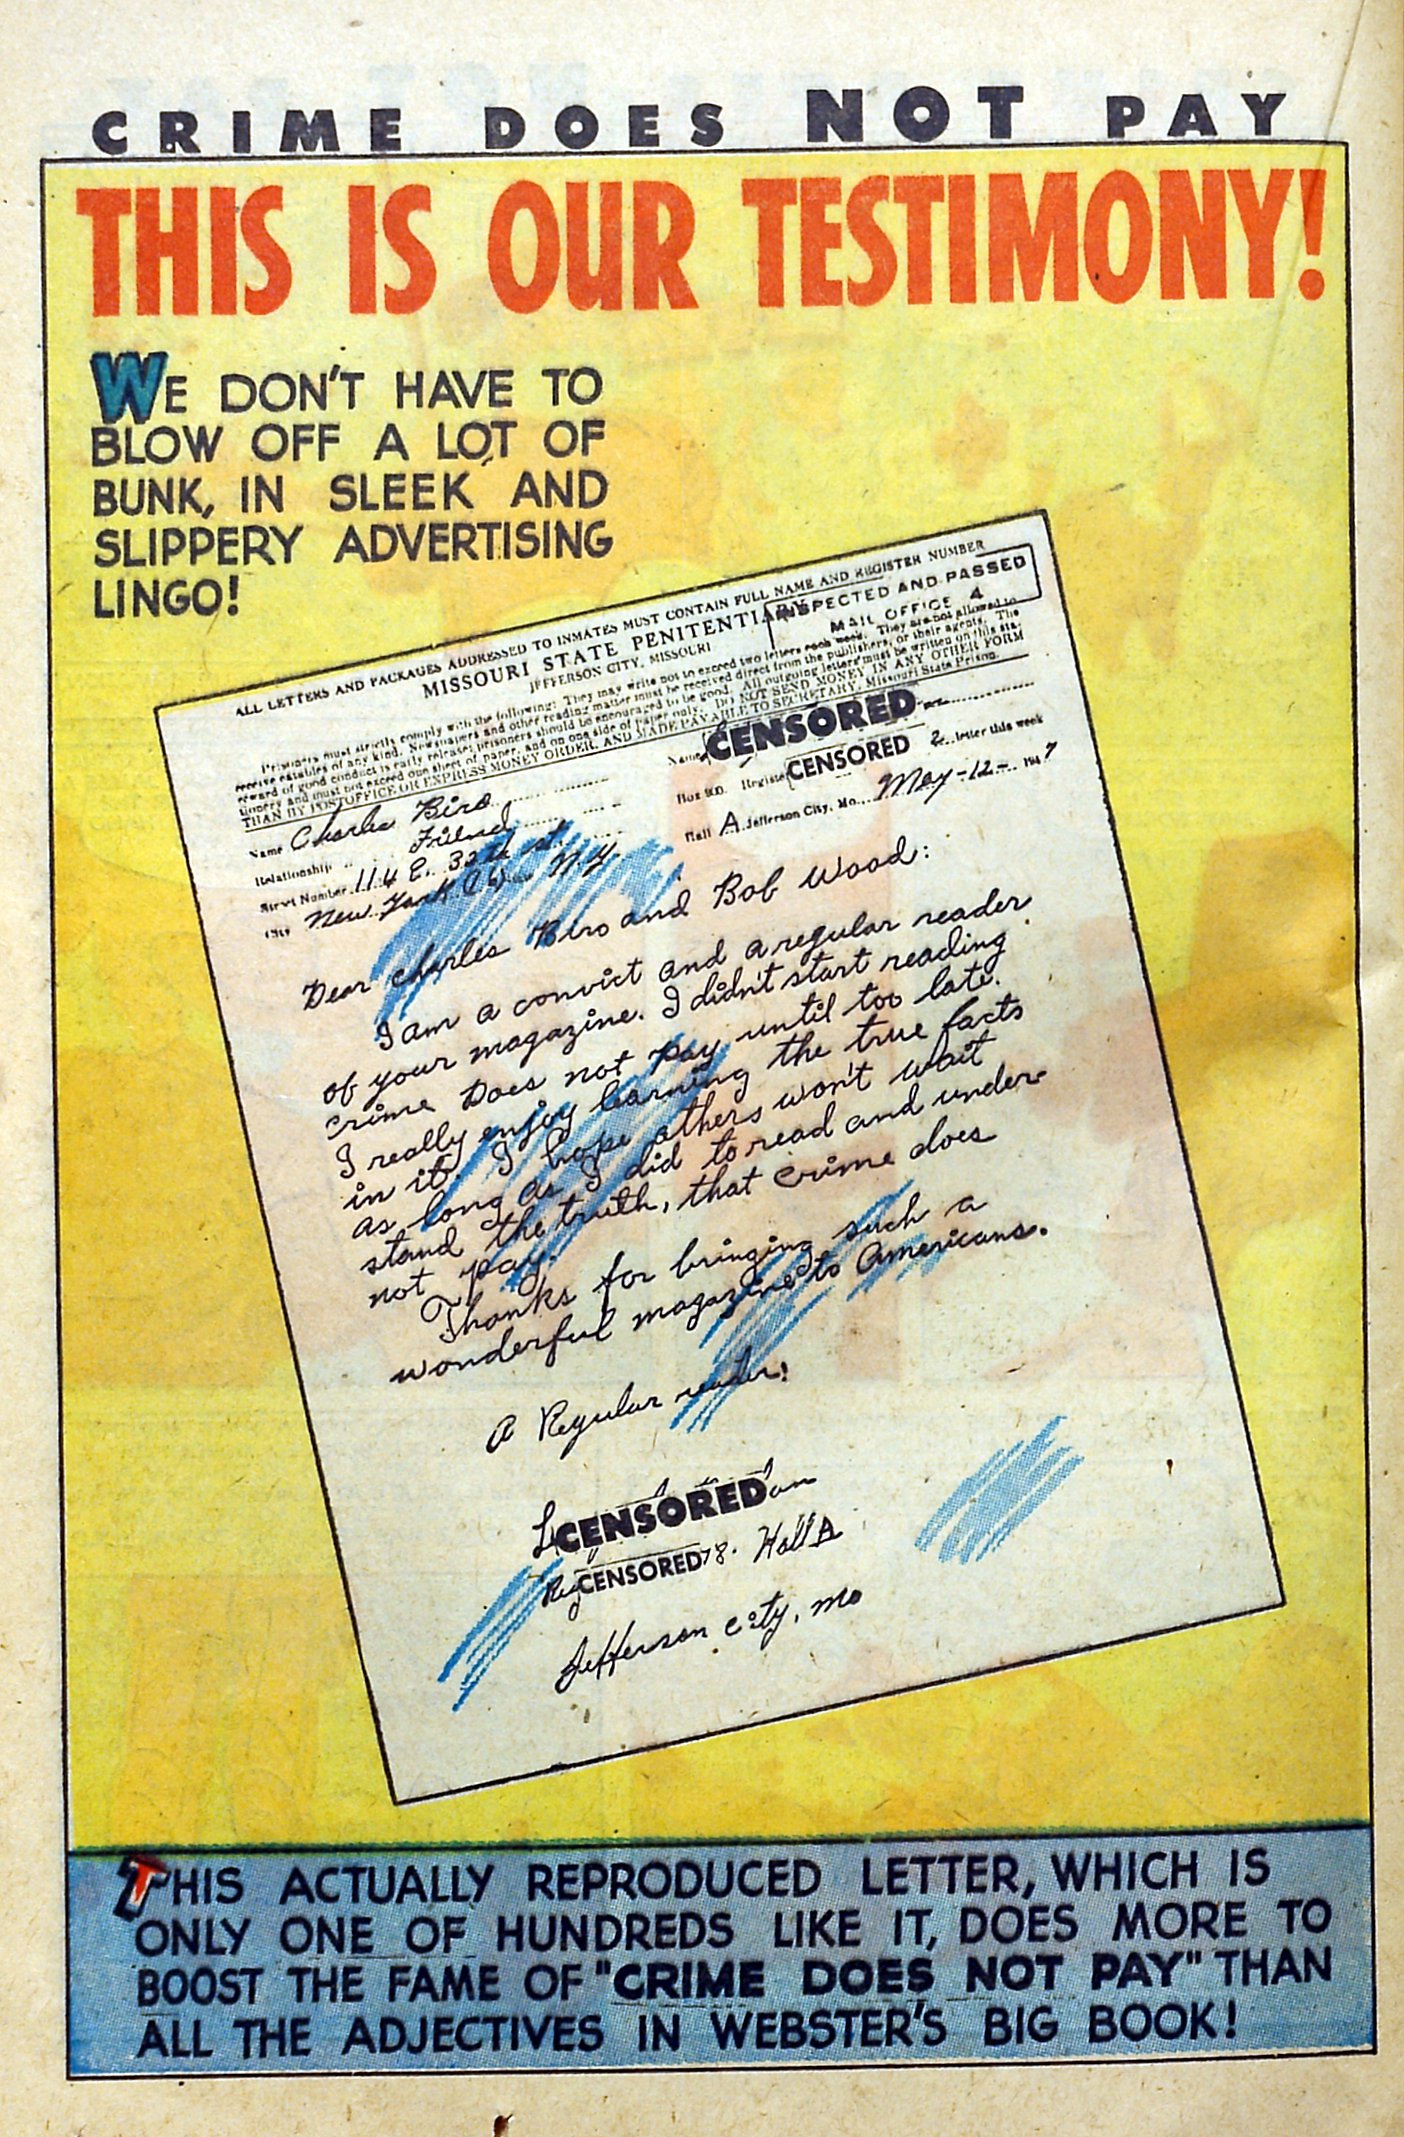 CRIME DOES NOT PAY
THIS IS OUR TESTIMONY!
WE DON'T HAVE TO
BLOW OFF A LOT OF
BUNK, IN SLEEK AND
SLIPPERY ADVERTISING
LINGO!
ALL LETTERS AND PACKAGES ADDRESSED TO INMATES MUST CONTAIN FULL NAME AND REGISTER NUMBER
MISSOURI STATE PENITENTIARY
INSPECTED AND PASSED
MAIL OFFICE 4
JEFFERSON CITY, MISSOURI
Prisoners must strictly comply with the following: They may write not to exceed two letters each week. They are not allowed to
receive eatables of any kind. Newspapers and other reading matter must be received direct from the publishers, or their agents. The
reward of good conduct is early release; prisoners should be encouraged to be good. All outgoing letters must be written on this sta-
tionery and must not exceed one sheet of paper, and on one side of paper only. DO NOT SEND MONEY IN ANY OTHER FORM
THAN BY POSTOFFICE OR EXPRESS MONEY ORDER, AND MADE PAYABLE TO SECRETARY, Missouri State Prison.
Name CENSORED
Name Charlie Biro
Box 900. Register CENSORED 2 letter this week
Relationship Friend
Hall A Jefferson City, Mo. May-12- 1947
Street Number 114 E. 32th st.
City New York City N.Y.
Dear Charles Biro and Bob Wood:
I am a convict and a regular reader
of your magazine. I didn't start reading
crime Does not Pay until too late.
I really enjoy learning the true facts
in it. I hope others won't wait
as long as I did to read and under-
stand the truth, that crime does
not pay.
Thanks for bringing such a
wonderful magazine to Americans.
A Regular reader!
CENSORED
Reg CENSORED 78. Hall A
Jefferson City, Mo
THIS ACTUALLY REPRODUCED LETTER, WHICH IS
ONLY ONE OF HUNDREDS LIKE IT, DOES MORE TO
BOOST THE FAME OF "CRIME DOES NOT PAY" THAN
ALL THE ADJECTIVES IN WEBSTER'S BIG BOOK!